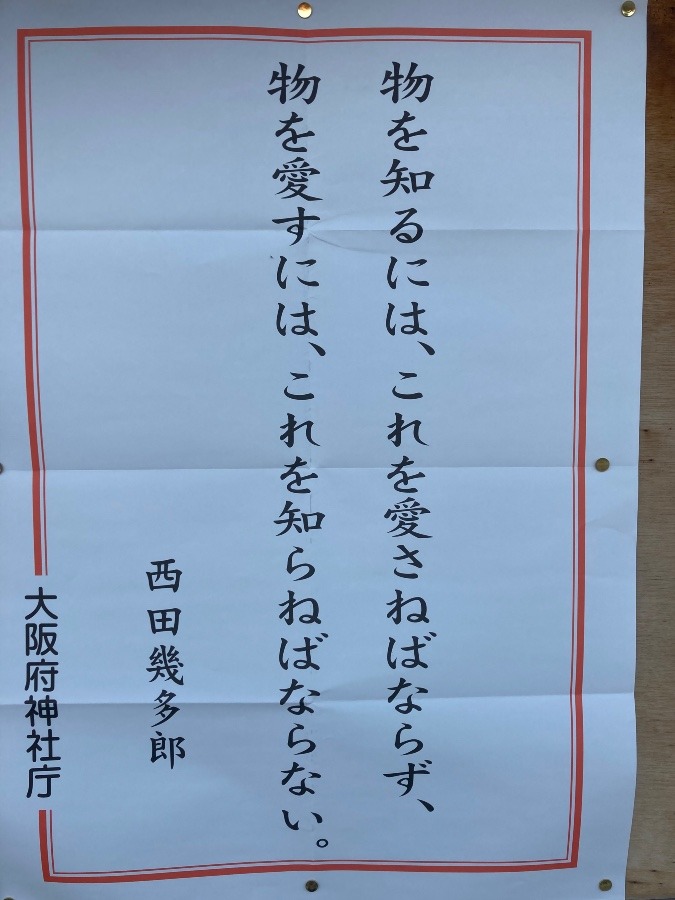 物を知るには、これを愛さねばならず、
物を愛すには、これを知らねばならない。
西田幾多郎
大阪府神社庁